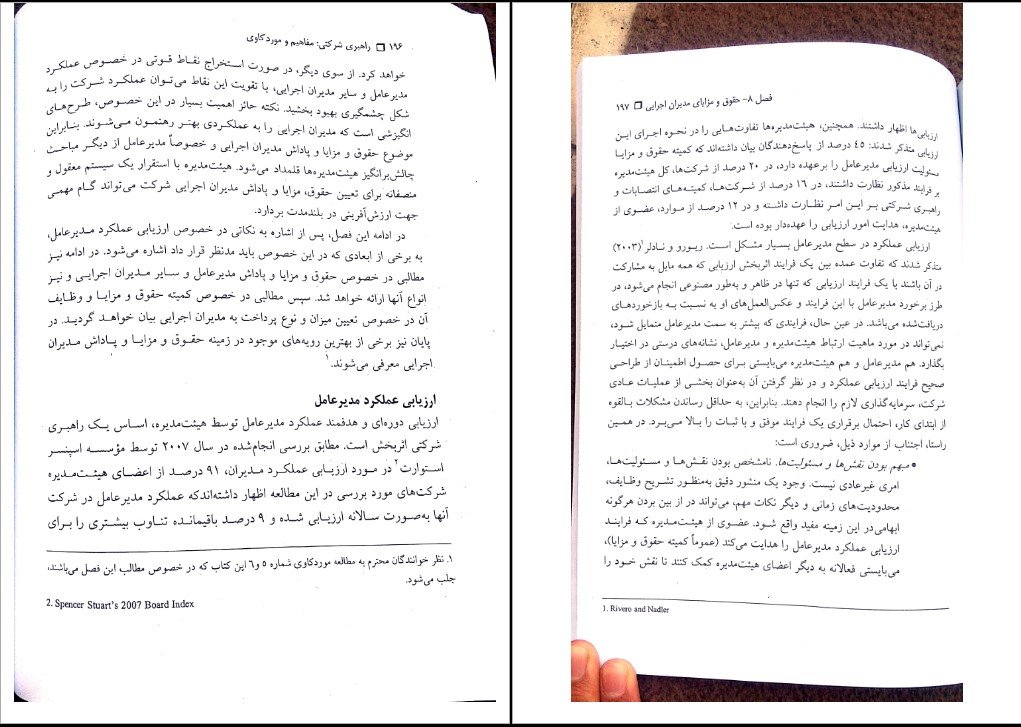 ۱۹۶ ❐ راهبری شرکتی: مفاهیم و موردکاوی
خواهد کرد. از سوی دیگر، در صورت استخراج نقاط قوتی در خصوص عملکرد
مدیرعامل و سایر مدیران اجرایی، با تقویت این نقاط می‌توان عملکرد شرکت را به
شکل چشمگیری بهبود بخشید. نکته حائز اهمیت بسیار در این خصوص، طرح‌های
انگیزشی است که مدیران اجرایی را به عملکردی بهتر رهنمون می‌شوند. بنابراین
موضوع حقوق و مزایا و پاداش مدیران اجرایی و خصوصاً مدیرعامل از دیگر مباحث
چالش‌برانگیز هیئت‌مدیره‌ها قلمداد می‌شود. هیئت‌مدیره با استقرار یک سیستم معقول و
منصفانه برای تعیین حقوق، مزایا و پاداش مدیران اجرایی شرکت می‌تواند گام مهمی
جهت ارزش‌آفرینی در بلندمدت بردارد.
در ادامه این فصل، پس از اشاره به نکاتی در خصوص ارزیابی عملکرد مدیرعامل،
به برخی از ابعادی که در این خصوص باید مدنظر قرار داد اشاره می‌شود. در ادامه نیز
مطالبی در خصوص حقوق و مزایا و پاداش مدیرعامل و سایر مدیران اجرایی و نیز
انواع آنها ارائه خواهد شد. سپس مطالبی در خصوص کمیته حقوق و مزایا و وظایف
آن در خصوص تعیین میزان و نوع پرداخت به مدیران اجرایی بیان خواهد گردید. در
پایان نیز برخی از بهترین رویه‌های موجود در زمینه حقوق و مزایا و پاداش مدیران
اجرایی معرفی می‌شوند.۱
ارزیابی عملکرد مدیرعامل
ارزیابی دوره‌ای و هدفمند عملکرد مدیرعامل توسط هیئت‌مدیره، اساس یک راهبری
شرکتی اثربخش است. مطابق بررسی انجام‌شده در سال ۲۰۰۷ توسط مؤسسه اسپنسر
استوارت۲ در مورد ارزیابی عملکرد مدیران، ۹۱ درصد از اعضای هیئت‌مدیره
شرکت‌های مورد بررسی در این مطالعه اظهار داشته‌اندکه عملکرد مدیرعامل در شرکت
آنها به‌صورت سالانه ارزیابی شده و ۹ درصد باقیمانده تناوب بیشتری را برای
۱. نظر خوانندگان محترم به مطالعه موردکاوی شماره ۵ و۶ این کتاب که در خصوص مطالب این فصل می‌باشند،
جلب می‌شود.
2. Spencer Stuart's 2007 Board Index
فصل ۸- حقوق و مزایای مدیران اجرایی ❐ ۱۹۷
ارزیابی‌ها اظهار داشتند. همچنین، هیئت‌مدیره‌ها تفاوت‌هایی را در نحوه اجرای این
ارزیابی متذکر شدند: ۴۵ درصد از پاسخ‌دهندگان بیان داشته‌اند که کمیته حقوق و مزایا
مسئولیت ارزیابی مدیرعامل را برعهده دارد، در ۲۰ درصد از شرکت‌ها، کل هیئت‌مدیره
بر فرایند مذکور نظارت داشتند، در ۱۶ درصد از شرکت‌ها، کمیته‌های انتصابات و
راهبری شرکتی بر این امر نظارت داشته و در ۱۲ درصد از موارد، عضوی از
هیئت‌مدیره، هدایت امور ارزیابی را عهده‌دار بوده است.
ارزیابی عملکرد در سطح مدیرعامل بسیار مشکل است. ریورو و نادلر۱ (۲۰۰۳)
متذکر شدند که تفاوت عمده بین یک فرایند اثربخش ارزیابی که همه مایل به مشارکت
در آن باشند با یک فرایند ارزیابی که تنها در ظاهر و به‌طور مصنوعی انجام می‌شود، در
طرز برخورد مدیرعامل با این فرایند و عکس‌العمل‌های او به نسبت به بازخوردهای
دریافت‌شده می‌باشد. در عین حال، فرایندی که بیشتر به سمت مدیرعامل متمایل شود،
نمی‌تواند در مورد ماهیت ارتباط هیئت‌مدیره و مدیرعامل، نشانه‌های درستی در اختیار
بگذارد. هم مدیرعامل و هم هیئت‌مدیره می‌بایستی برای حصول اطمینان از طراحی
صحیح فرایند ارزیابی عملکرد و در نظر گرفتن آن به‌عنوان بخشی از عملیات عادی
شرکت، سرمایه‌گذاری لازم را انجام دهند. بنابراین، به حداقل رساندن مشکلات بالقوه
از ابتدای کار، احتمال برقراری یک فرایند موفق و با ثبات را بالا می‌برد. در همین
راستا، اجتناب از موارد ذیل، ضروری است:
• مبهم بودن نقش‌ها و مسئولیت‌ها. نامشخص بودن نقش‌ها و مسئولیت‌ها،
امری غیرعادی نیست. وجود یک منشور دقیق به‌منظور تشریح وظایف،
محدودیت‌های زمانی و دیگر نکات مهم، می‌تواند در از بین بردن هرگونه
ابهامی‌در این زمینه مفید واقع شود. عضوی از هیئت‌مدیره که فرایند
ارزیابی عملکرد مدیرعامل را هدایت می‌کند (عموماً کمیته حقوق و مزایا)،
می‌بایستی فعالانه به دیگر اعضای هیئت‌مدیره کمک کنند تا نقش خود را
1. Rivero and Nadler